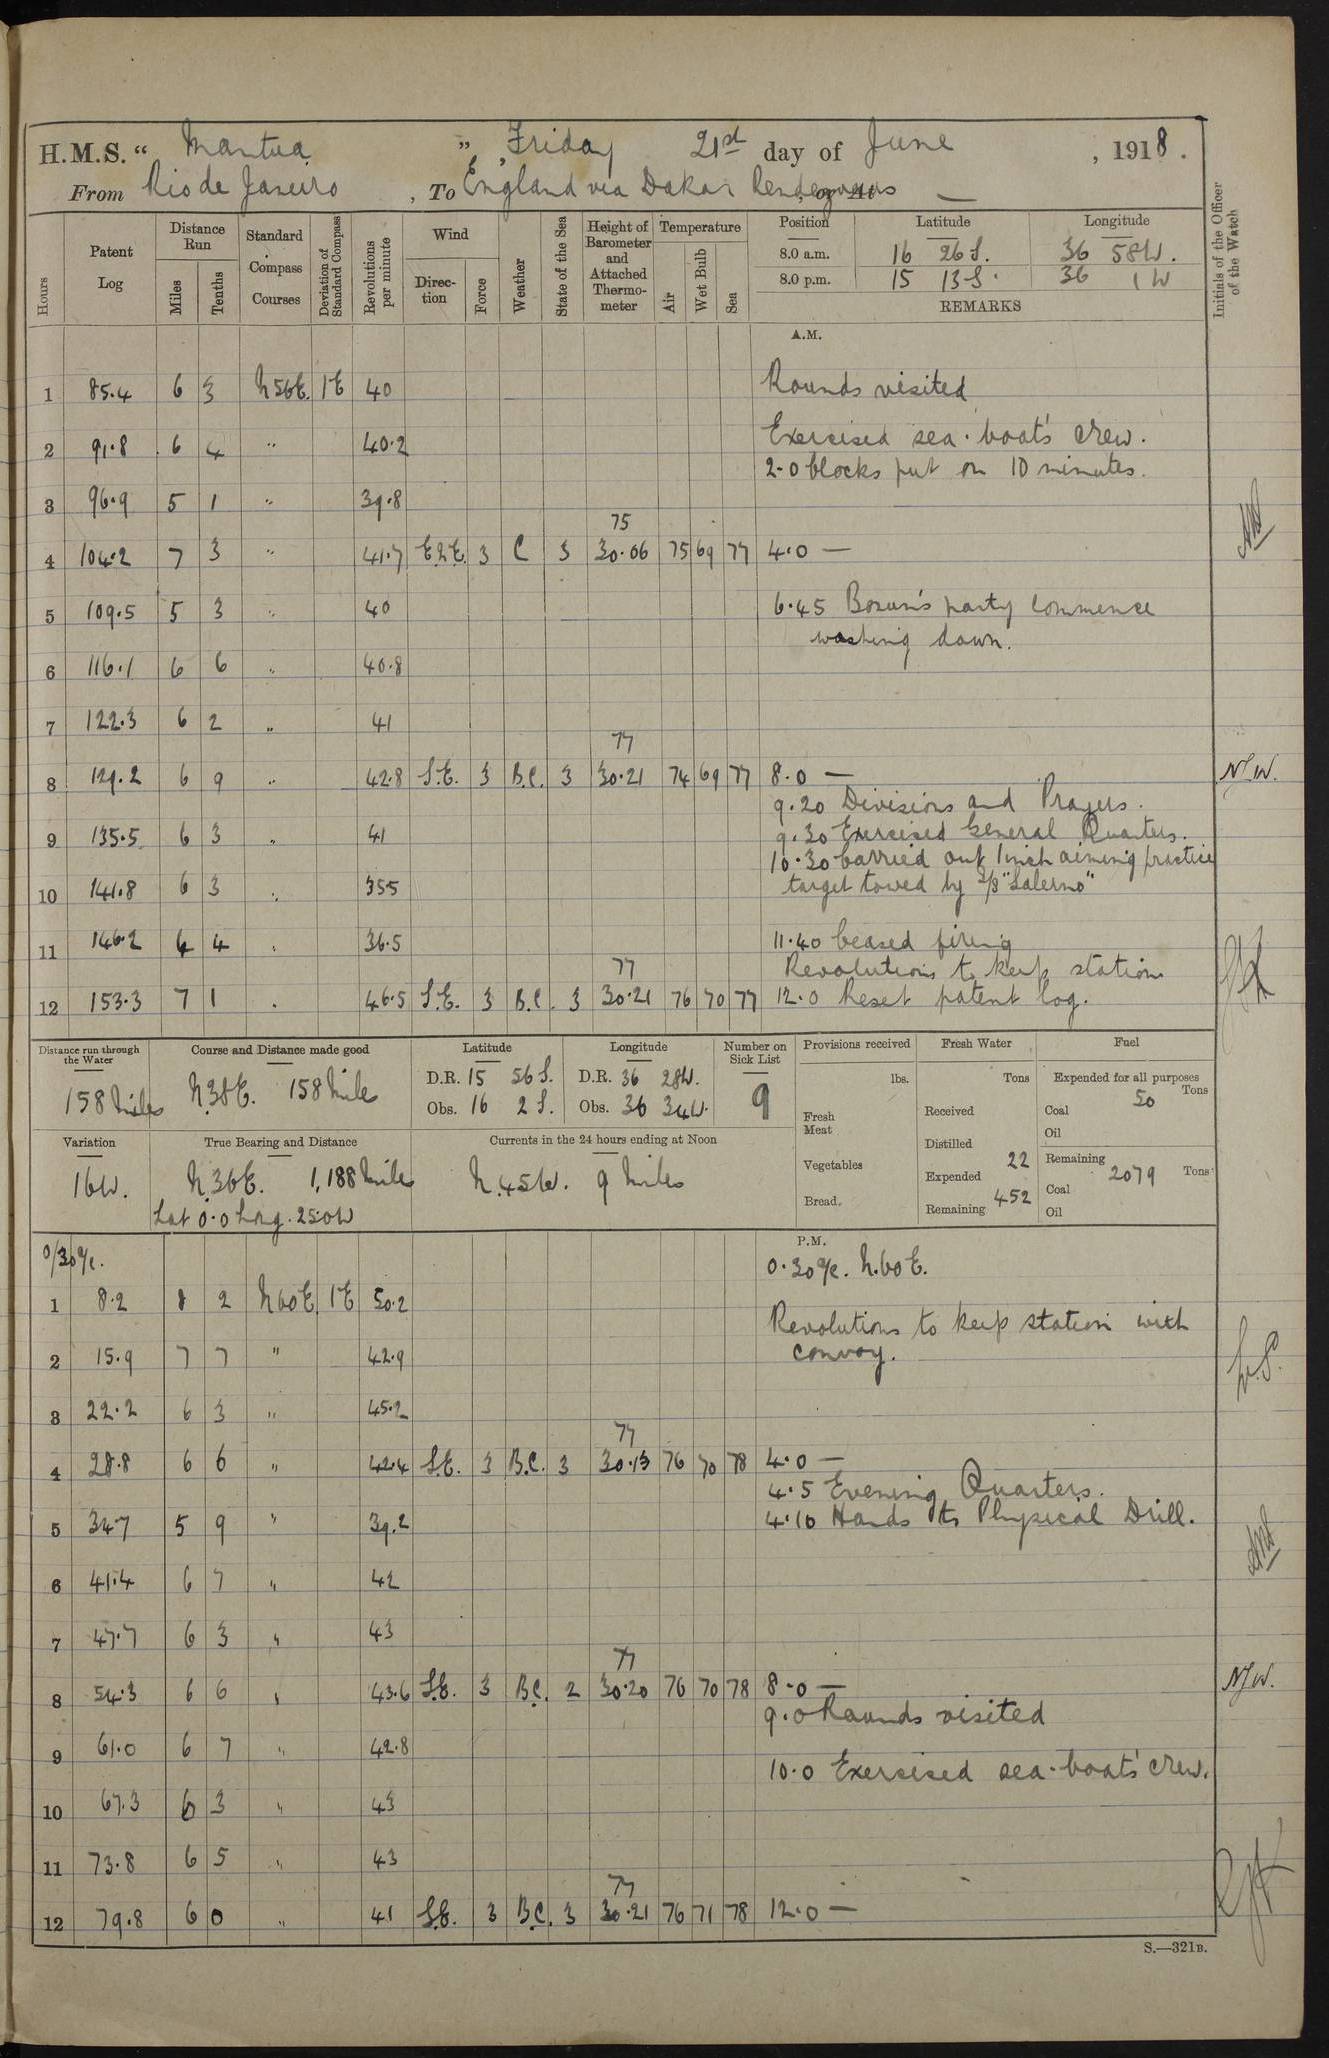 H.M.S. “ Mantua ” , Friday 21st day of June , 1918 .
From Rio de Janeiro , To England via Dakar Rendezvous , or At —
Hours
Patent Log
Distance Run
Miles
Tenths
Standard Compass Courses
Deviation of Standard Compass
Revolutions per minute
Wind
Direction
Force
Weather
State of the Sea
Height of Barometer and Attached Thermometer
Temperature
Air
Wet Bulb
Sea
Position Latitude Longitude
8.0 a.m. 16 26 S. 36 58 W.
8.0 p.m. 15 13 S. 36 1 W
REMARKS
Initials of the Officer of the Watch
A.M.
1 85.4 6 3 N56E. 1E 40 Rounds visited
Exercised sea-boat's crew.
2 91.8 6 4 " 40.2
2.0 blocks put on 10 minutes.
3 96.9 5 1 " 39.8
75
4 104.2 7 3 " 41.7 3 C 3 30.06 75 69 77 4.0 —
5 109.5 5 3 " 40 6.45 Bosun's party commence
washing down.
6 116.1 6 6 " 40.8
7 122.3 6 2 " 41
77
8 129.2 6 9 " 42.8 S.E. 3 B.C. 3 30.21 74 69 77 8.0 — N.W.
9.20 Divisions and Prayers.
9 135.5 6 3 " 41 9.30 Exercised General Quarters.
10.30 Carried out 1 inch aiming practice
10 141.8 6 3 " 35.5 target towed by S/S "Salerno"
11 146.2 4 4 " 36.5 11.40 Ceased firing
77 Revolutions to keep station
12 153.3 7 1 " 46.5 S.E. 3 B.C. 3 30.21 76 70 77 12.0 Reset patent log.
Distance run through the Water
158 Miles
Course and Distance made good
N.38E. 158 Mile
Latitude
D.R. 15 56 S.
Obs. 16 2 S.
Longitude
D.R. 36 28W.
Obs. 36 34W.
Number on Sick List
9
Provisions received
lbs.
Fresh Meat
Vegetables
Bread.
Fresh Water
Tons
Received
Distilled
Expended 22
Remaining 452
Fuel
Expended for all purposes
Tons
Coal 50
Oil
Remaining
Coal 2079 Tons
Oil
Variation
16W.
True Bearing and Distance
N.36E. 1,188 Miles
Lat 0.0 Long. 25.0W
Currents in the 24 hours ending at Noon
N.45W. 9 Miles
P.M.
0/30 a/c. 0.30 a/c. N.60E.
1 8.2 8 2 N60E. 1E 50.2
Revolutions to keep station with
2 15.9 7 7 " 42.9 convoy.
3 22.2 6 3 " 45.2
77
4 28.8 6 6 " 42.4 S.E. 3 B.C. 3 30.13 76 70 78 4.0 —
4.5 Evening Quarters.
5 34.7 5 9 " 39.2 4.10 Hands to Physical Drill.
6 41.4 6 7 " 42
7 47.7 6 3 " 43
77
8 54.3 6 6 " 43.6 S.E. 3 B.C. 2 30.20 76 70 78 8.0 — N.W.
9.0 Rounds visited
9 61.0 6 7 " 42.8
10.0 Exercised sea-boat's crew.
10 67.3 6 3 " 43
11 73.8 6 5 " 43
77
12 79.8 6 0 " 41 S.E. 3 B.C. 3 30.21 76 71 78 12.0 —
S.—321B.